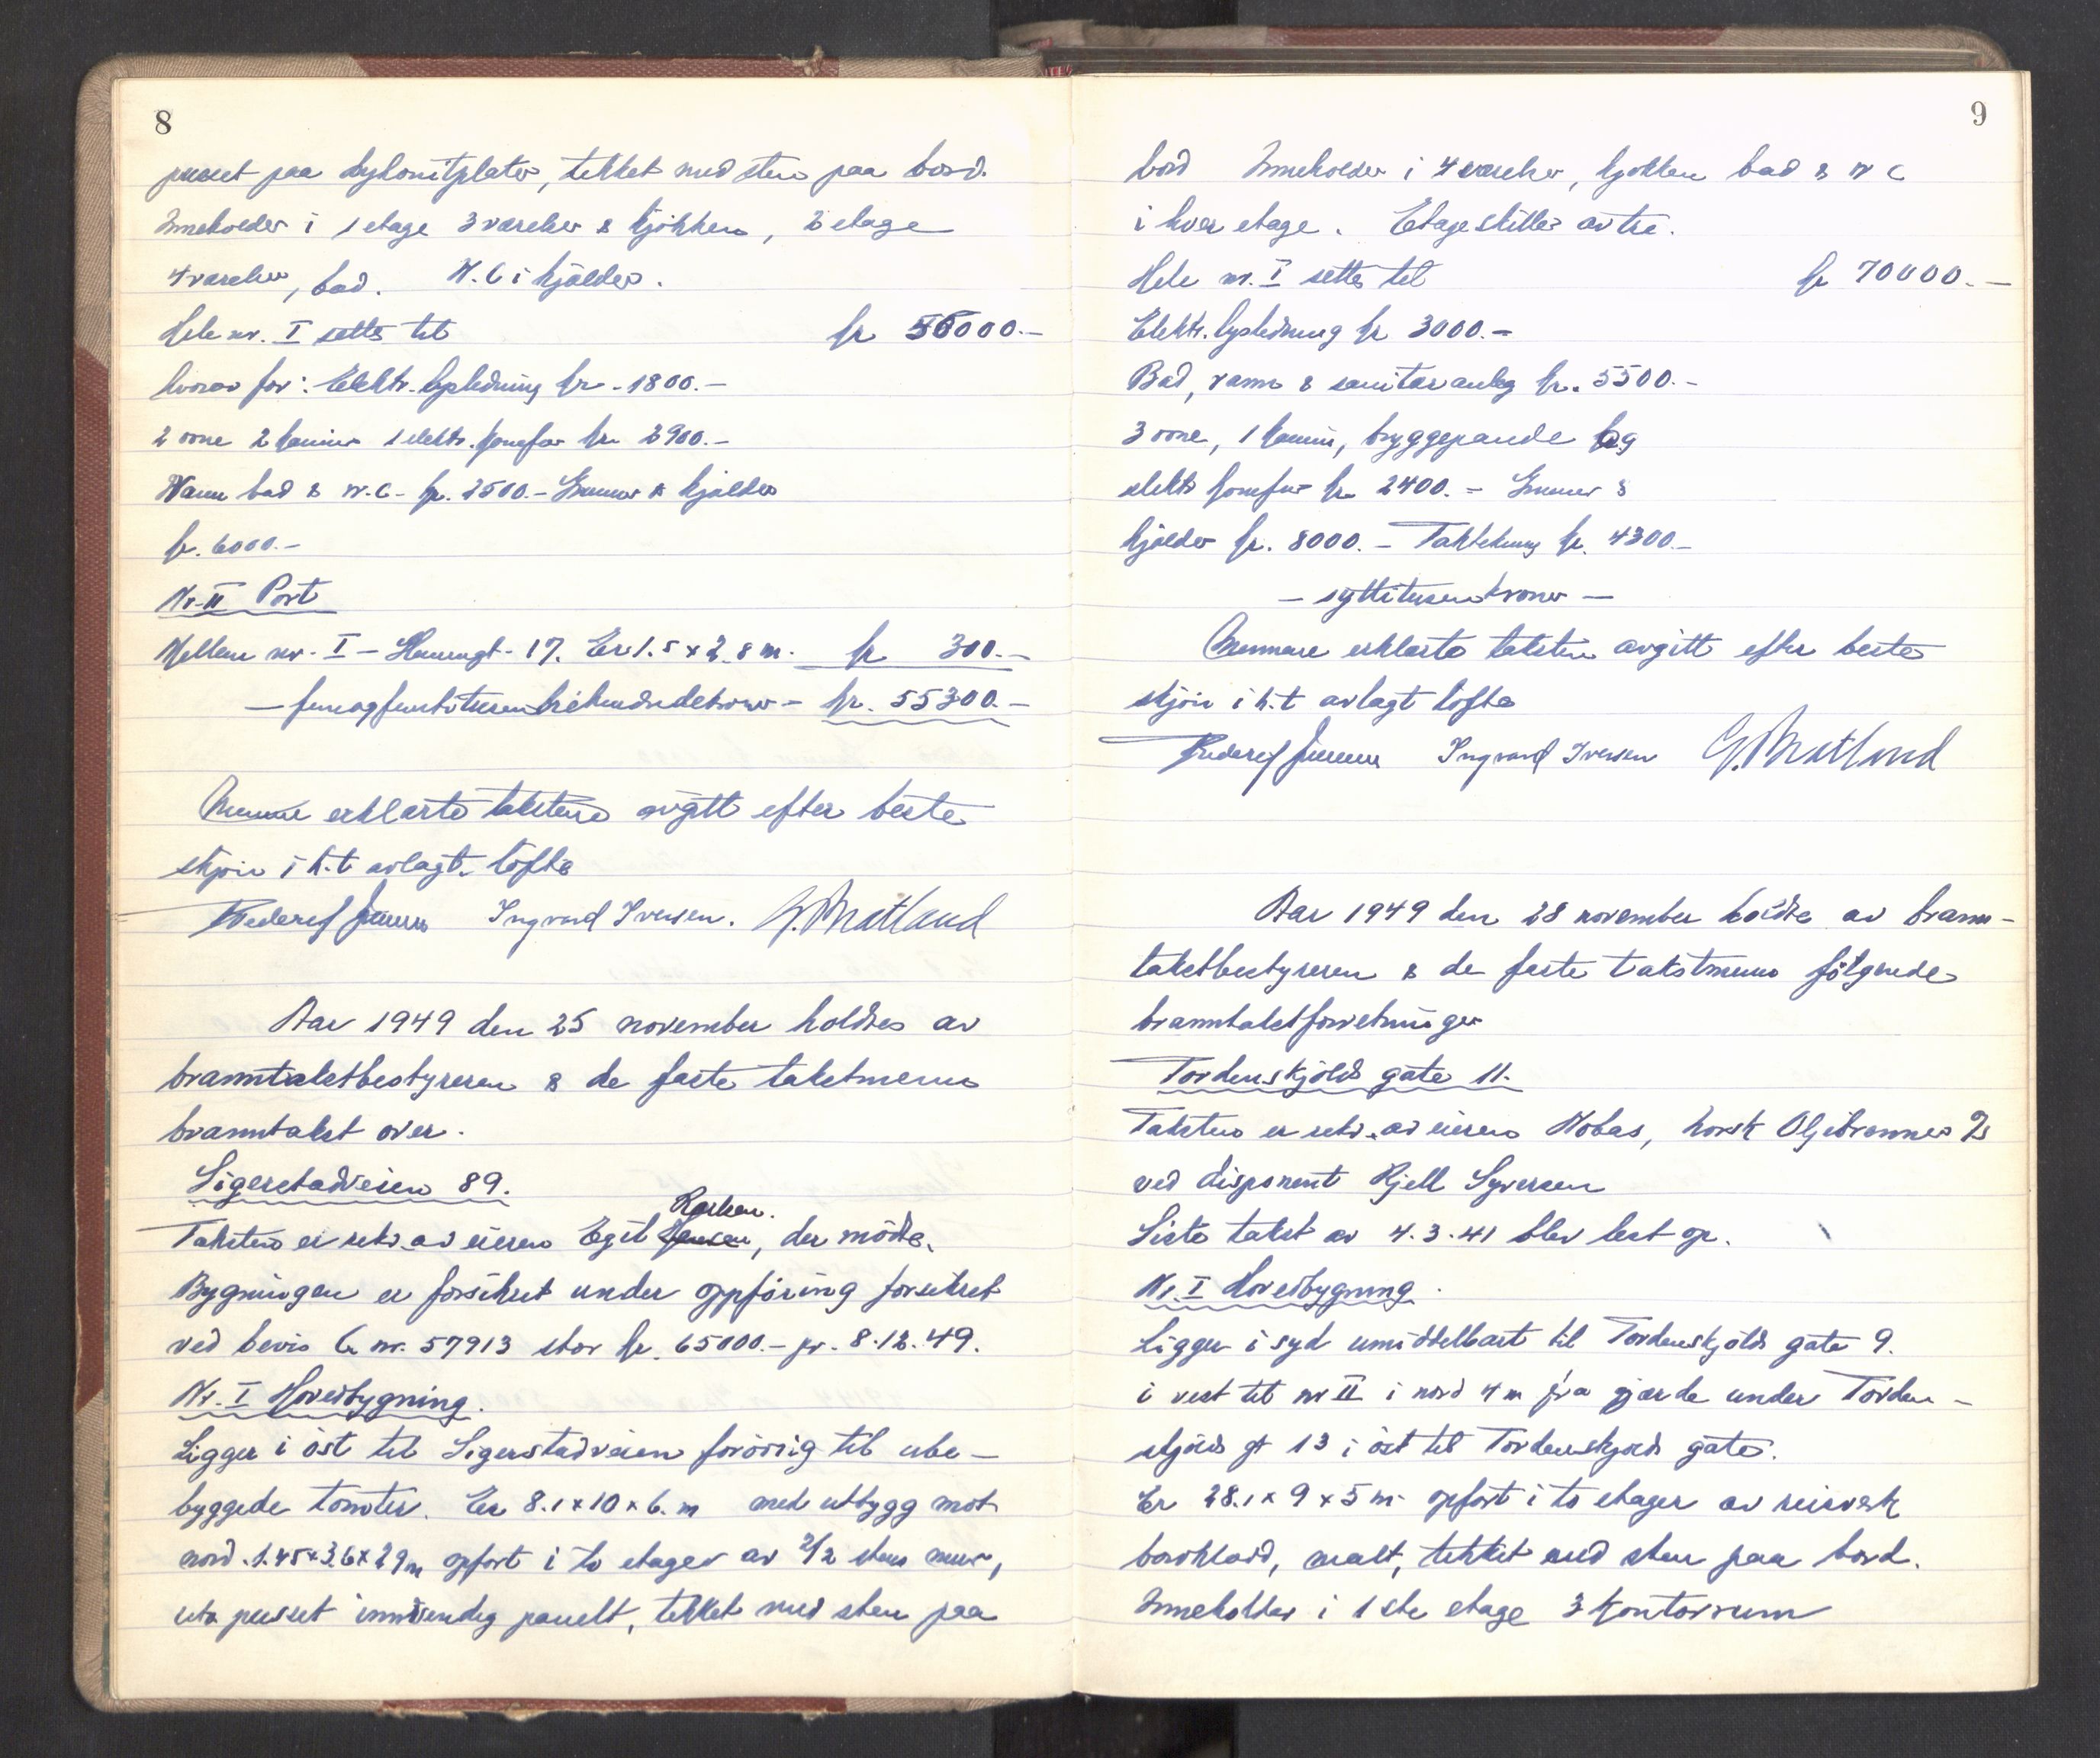 8
pusset paa heyhonitplater, tekket med sten paa bord.
Inneholder i 1 etage 3 værelser & kjøkken, 2 etage
4 værelser, bad. W.C i kjælder.
Hele nr. I settes til kr 55000.-
hvorav for: Elektr. lysledning kr. 1800.-
2 ovne 2 kaminer 1 elektr. komfør kr. 2900.-
Vann bad & w.c. kr. 2500.- Grunnmur & kjælder
kr. 6000.-
Nr. II Port
Mellem nr. I - Haunegt. 17. Er 1.5 x 2.8 m. kr 300.-
- femogfemtitusentrehundredekroner - kr. 55300.-
Mennene erklærte taksten avgitt efter beste
skjøn i h.t avlagt løfte
Ingvard Iversen. G. Matland
Aar 1949 den 25 november holdtes av
branntakstbestyreren & de faste takstmenn
branntakst over.
Sigerstadveien 89.
Rasken.
Taksten er rekv. av eieren Egil Jensen, der møtte.
Bygningen er forsikret under opføring forsikret
ved bevis C nr. 57913 stor kr. 65000.- pr. 8.12.49.
Nr. I Hovedbygning.
Ligger i øst til Sigerstadveien forøvrig til ube-
byggede tomter. Er 8.1 x 10 x 6. m med utbygg mot
nord. 1.45 x 3.6 x 2.9 m opført i to etager av 2/2 stens mur,
utv pusset innvendig panelt, tekket med sten paa
9
bord Inneholder i 4 værelser, kjøkken bad & w c
i hver etage. Etageskiller av tre.
Hele nr. I settes til kr 70000.-
Elektr. lysledning kr 3000.-
Bad, vann & sanitæranleg kr. 5500.-
3 ovne, 1 kamin, bryggepande og
elektr komfur kr. 2400.- Grunnmur &
kjælder kr. 8000.- Taktekning kr. 4300.-
- syttitusenkroner -
Mennene erklærte taksten avgitt efter beste
skjøn i h.t avlagt løfte
Ingvard Iversen G. Matland
Aar 1949 den 28 november holdtes av brann-
takstbestyreren & de faste takstmenn følgende
branntakstforretninger
Tordenskjolds gate 11.
Taksten er rekv. av eieren Nobas, norsk Oljebrenner
ved disponent Kjell Syversen
Siste takst av 4.3.41 blev lest op.
Nr. I Hovedbygning.
Ligger i syd umiddelbart til Tordenskjolds gate 9.
i vest til nr II i nord 4 m fra gjærde under Torden-
skjolds gt 13 i øst til Tordenskjolds gate.
Er 28.1 x 9 x 5 m opført i to etager av reisverk
bordklædd, malt, tekket med sten paa bord.
Inneholder i 1ste etage 3 kontorrum